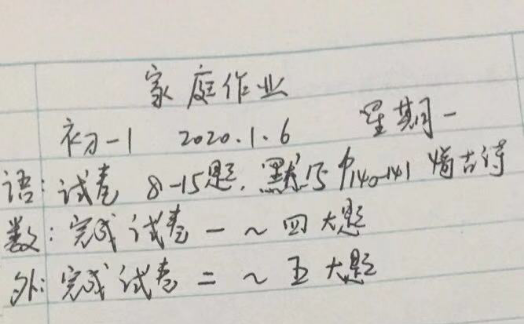 家庭作业
初一1 2020.1.6 星期一
语：试卷 8-15题，默写P140-141 古诗
数：完成试卷一~四大题
外：完成试卷二~五大题